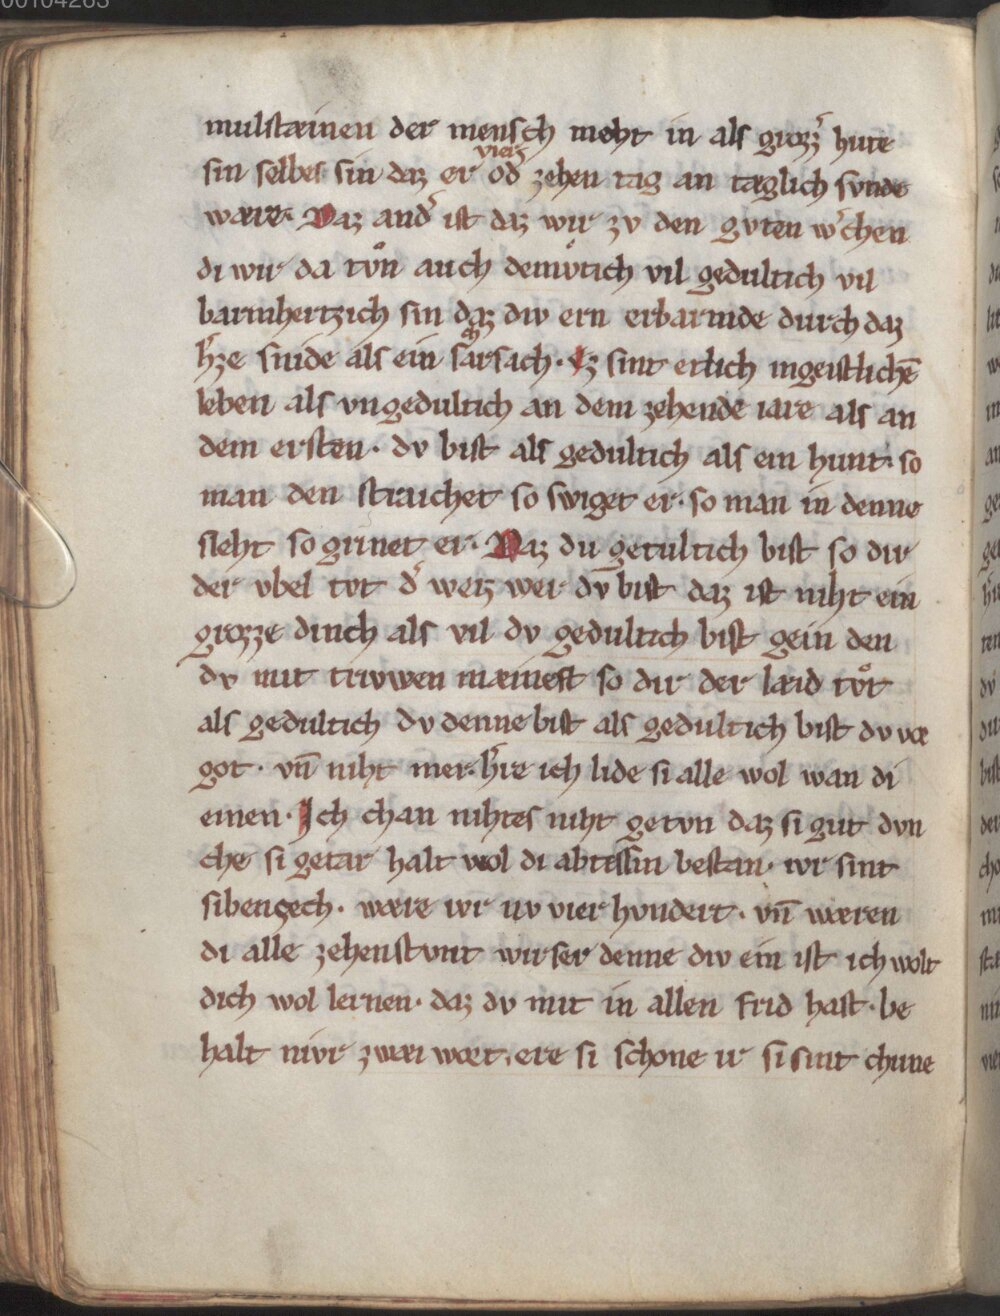 00104263
mulstæinen der mensch moht in als grozz᷑ hute
vierz
sin selbes sin daz er od᷑ zehen tag an tæglich sunde
wære. Daz and᷑ ist daz wir zv den gvten w᷑chen
di wir da tvͦn auch demvͤtich vil gedultich vil
barmhertzich sin daz div ern erbarmde durch daz
h᷑ze snide als ein scharsach. Ez sint etlich ingeistlichē
leben als vngedultich an dem zehende iare als an
dem ersten. dv bist als gedultich als ein hunt. so
man den straichet so swiget er. so man in denne
sleht so grinet er. Daz du getultich bist so dir
der vbel tvt d᷑ weiz wer dv bist daz ist niht ein
grozze dinch als vil dv gedultich bist gein den
dv mit trivwen mæinest so dir der læid tvͦt
als gedultich dv denne bist als gedultich bist dv vor
got. vn̄ niht mer. h᷑re ich lide si alle wol wan di
einen. Ich chan nihtes niht getvn daz si gut dvn
che si getar halt wol di abtessin bestan. wir sint
sibenzech. wære wir nv vier hvndert. vn̄ wæren
di alle zehenstvnt wirser denne div ein ist ich wolt
dich wol lernen. daz dv mit in allen frid hast. be
halt nivr zwæi wort. ere si schone ir si sint chune